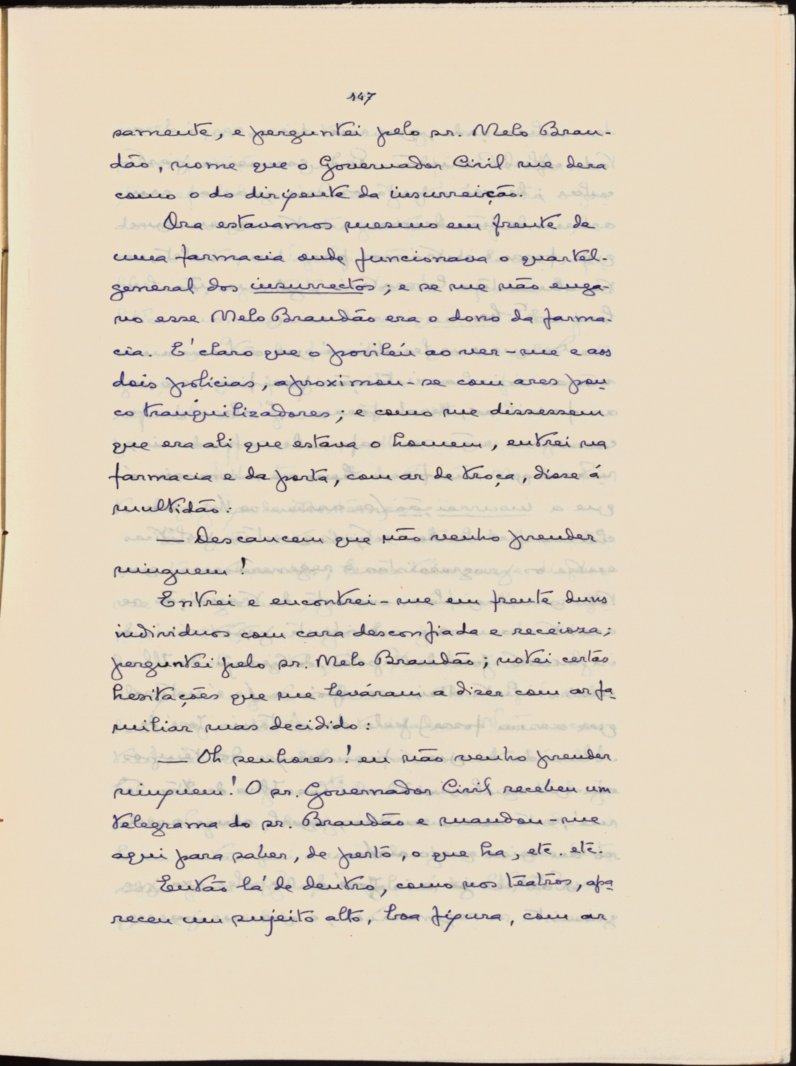 147
samente, e perguntei pelo sr. Melo Bran-
dão, nome que o Governador Civil me dera
como o do dirigente da insurreição.
Ora estavamos mesmo em frente de
uma farmacia onde funcionava o quartel-
general dos insurrectos; e se me não enga-
no esse Melo Brandão era o dono da farma-
cia. E' claro que o povileú ao ver-me e aos
dois policias, aproximou-se com ares pou-
co tranquilizadores; e como me dissessem
que era ali que estava o homem, entrei na
farmacia e da porta, com ar de troça, disse á
multidão:
— Descancem que não venho prender
ninguem!
Entrei e encontrei-me em frente duns
individuos com cara desconfiada e receiosa;
perguntei pelo sr. Melo Brandão; notei certas
hesitações que me leváram a dizer com ar fa-
miliar mas decidido:
— Oh senhores! eu não venho prender
ninguem! O sr. Governador Civil recebeu um
telegrama do sr. Brandão e mandou-me
aqui para saber, de perto, o que ha, etc. etc.
Então lá de dentro, como nos teatros, apa-
receu um sujeito alto, boa figura, com ar